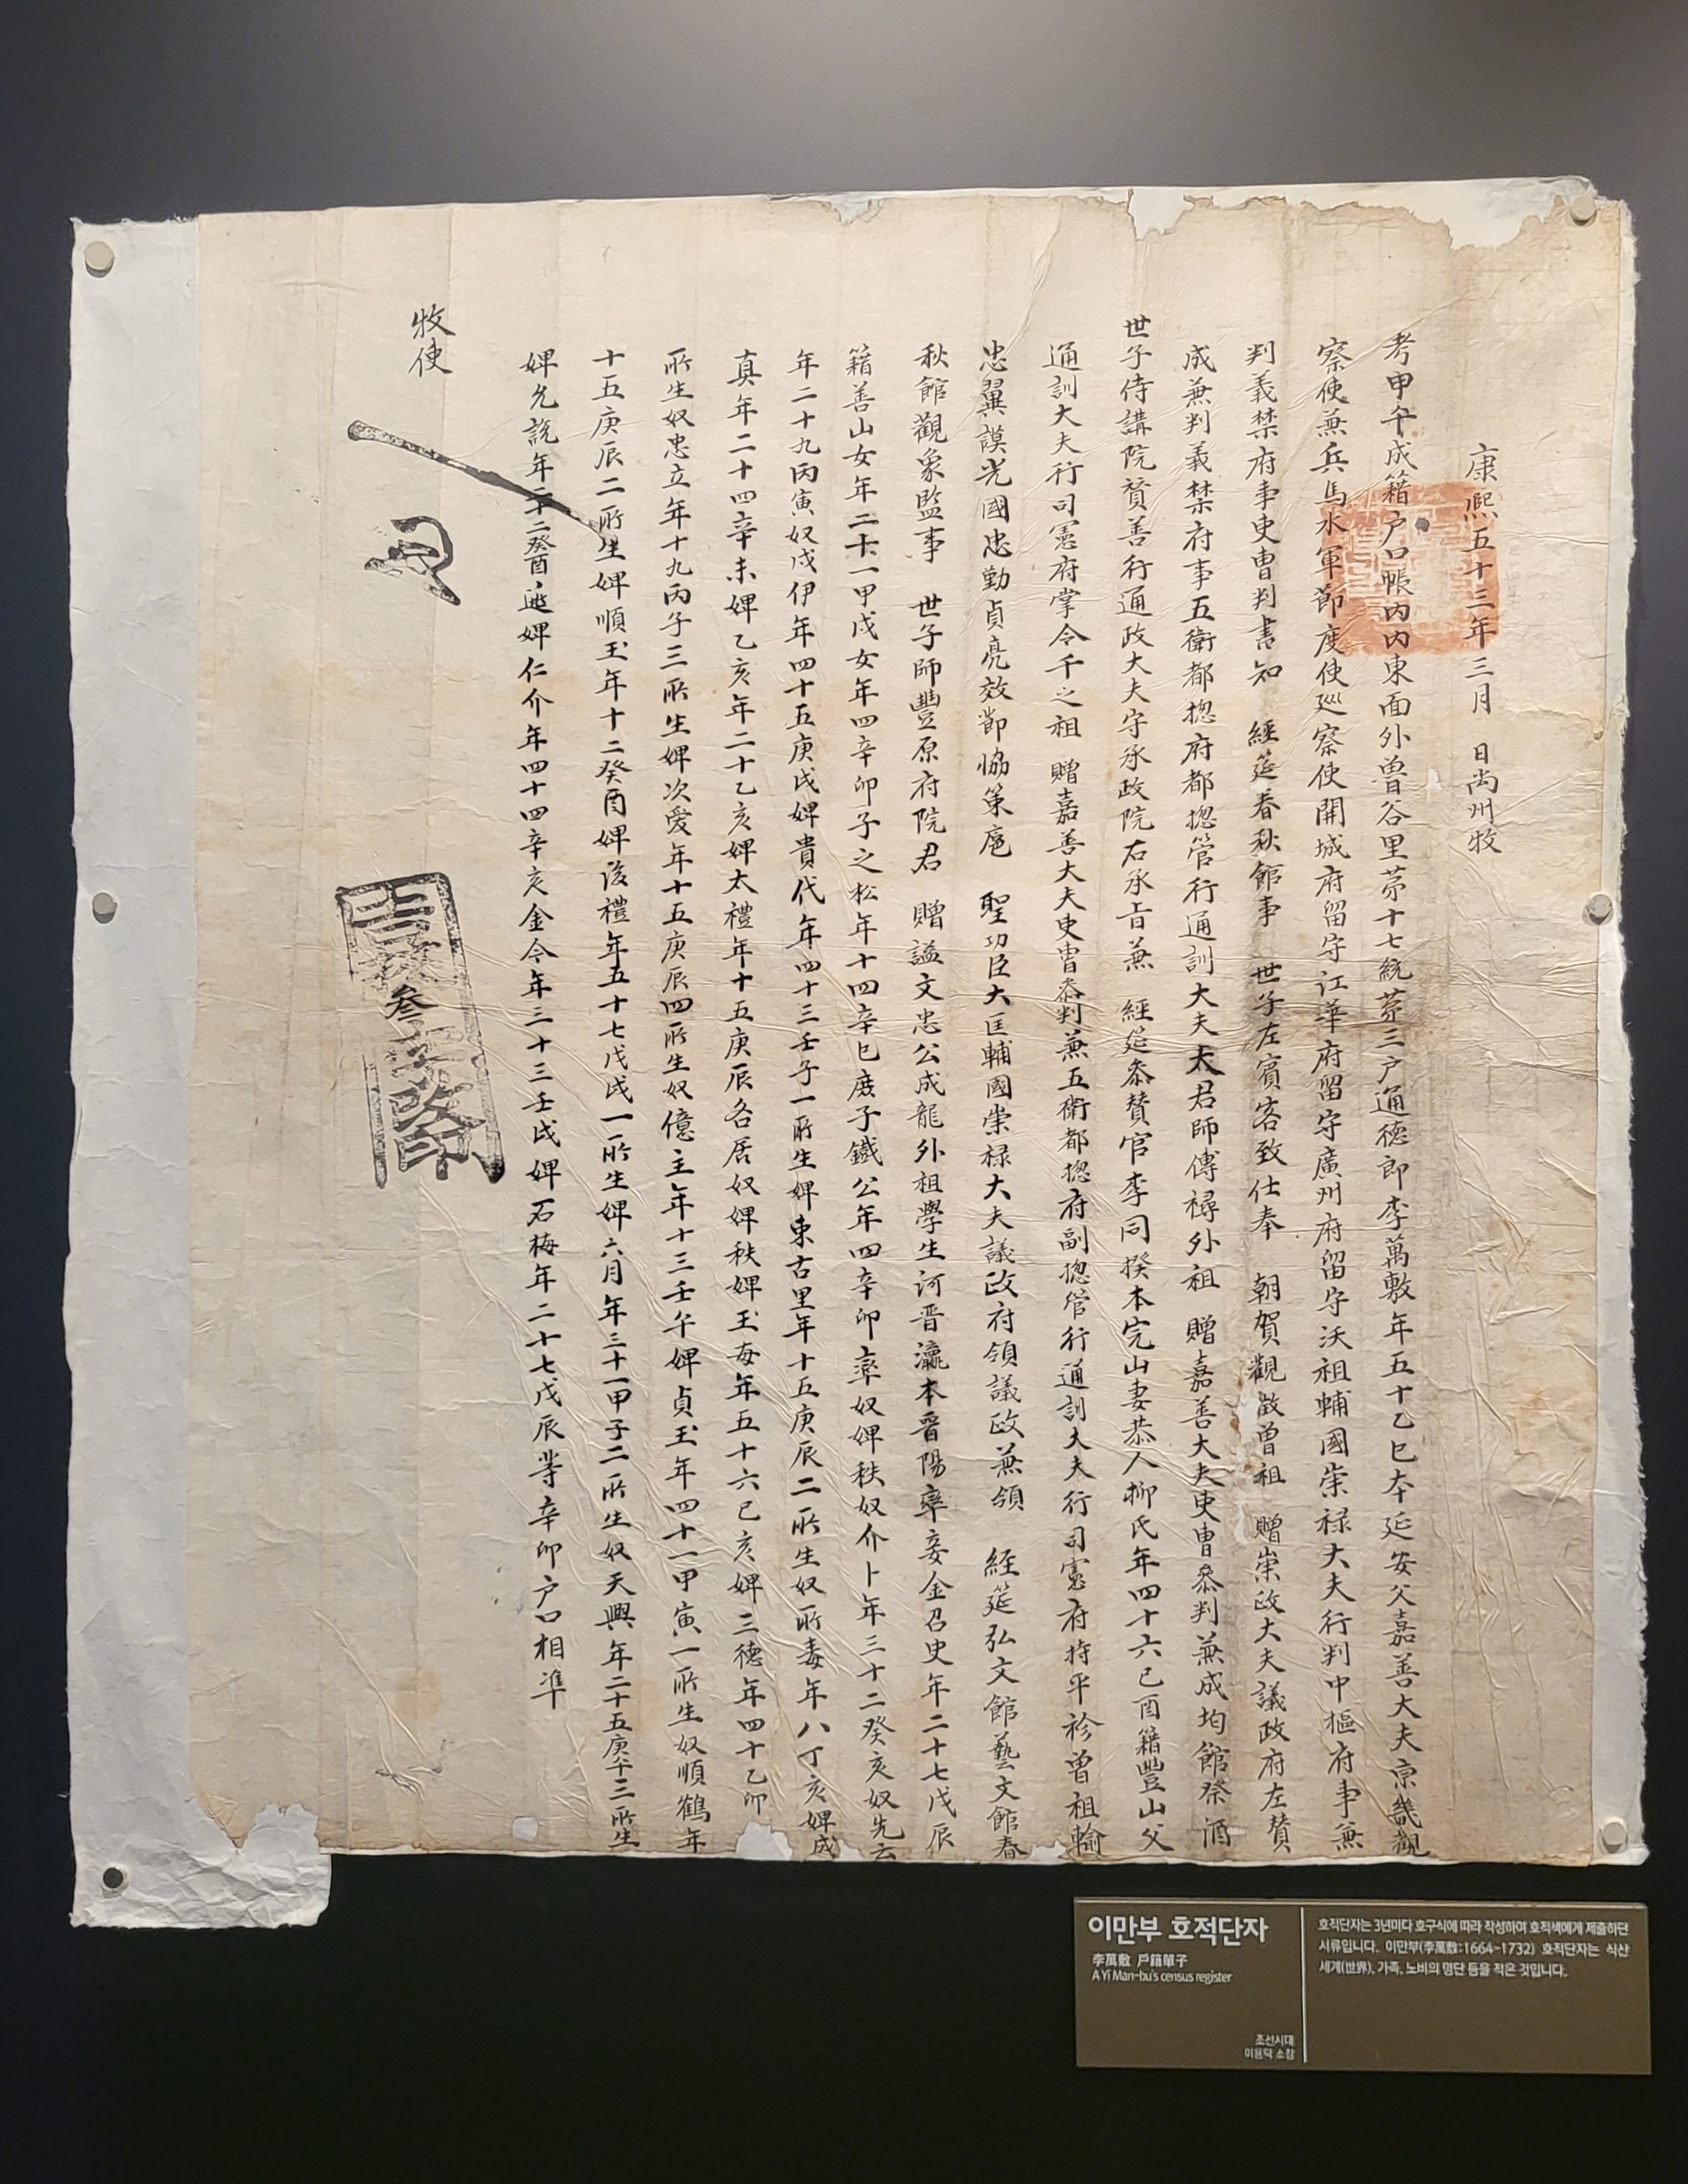 康熙五十三年三月 日尙州牧
考甲午成籍户口帳內內東面外曾谷里苐十七統苐三户通德郎李萬敷年五十乙巳本延安父嘉善大夫京畿觀
察使兼兵馬水軍節度使巡察使開城府留守江華府留守廣州府留守沃祖輔國崇祿大夫行判中樞府事兼
判義禁府事吏曹判書知 經筵春秋館事 世子左賓客致仕奉 朝賀觀徵曾祖 贈崇政大夫議政府左贊
成兼判義禁府事五衛都摠府都摠管行通訓大夫大君師傅襑外祖 贈嘉善大夫吏曹叅判兼成均館祭酒
世子侍講院贊善行通政大夫守承政院右承旨兼 經筵叅贊官李同揆本完山妻恭人柳氏年四十六己酉籍豐山父
通訓大夫行司憲府掌令千之祖 贈嘉善大夫吏曹叅判兼五衛都摠府副摠管行通訓大夫行司憲府持平袗曾祖輸
忠翼謨光國忠勤貞亮效節協策扈 聖功臣大匡輔國崇祿大夫議政府領議政兼領 經筵弘文館藝文館春
秋館觀象監事 世子師豐原府院君 贈謚文忠公成龍外祖學生河晋瀛本晋陽率妾金召史年二十七戊辰
籍善山女年二十一甲戌女年四辛卯子之松年十四辛巳庶子鐵公年四辛卯率奴婢秩奴介卜年三十二癸亥奴先云
年二十九丙寅奴戊伊年四十五庚戌婢貴代年四十三壬子一所生婢東古里年十五庚辰二所生奴所毒年八丁亥婢戌
真年二十四辛未婢乙亥年二十乙亥婢太禮年十五庚辰各居奴婢秩婢玉每年五十六己亥婢三德年四十乙卯
所生奴忠立年十九丙子三所生婢次愛年十五庚辰四所生奴億主年十三壬午婢貞玉年四十一甲寅一所生奴順鶴年
十五庚辰二所生婢順玉年十二癸酉婢後禮年五十七戊戌一所生婢六月年三十一甲子二所生奴天興年二十五庚午三所生
婢允說年二十二癸酉逃婢仁介年四十四辛亥金令年三十三壬戌婢石梅年二十七戊辰等辛卯户口相準
牧使
叄
이만부 호적단자
李萬敷 戶籍單子
A Yi Man-bu's census register
조선시대
이용덕 소장
호적단자는 3년마다 호구식에 따라 작성하여 호적색에게 제출하던
서류입니다. 이만부(李萬敷:1664~1732) 호적단자는 식산
세계(世界), 가족, 노비의 명단 등을 적은 것입니다.